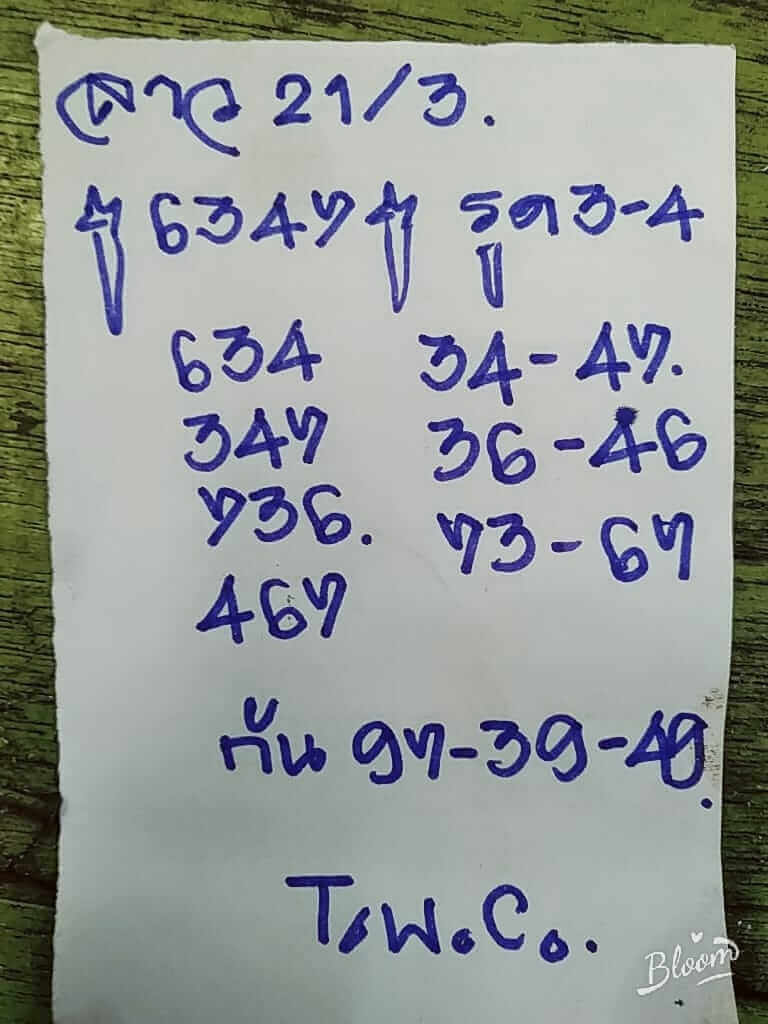 ลาว 21/3.
6347 รูด 3-4
634 34-47.
347 36-46
736. 73-67
467
กัน 97-39-49.
T.พ.C..
Bloom